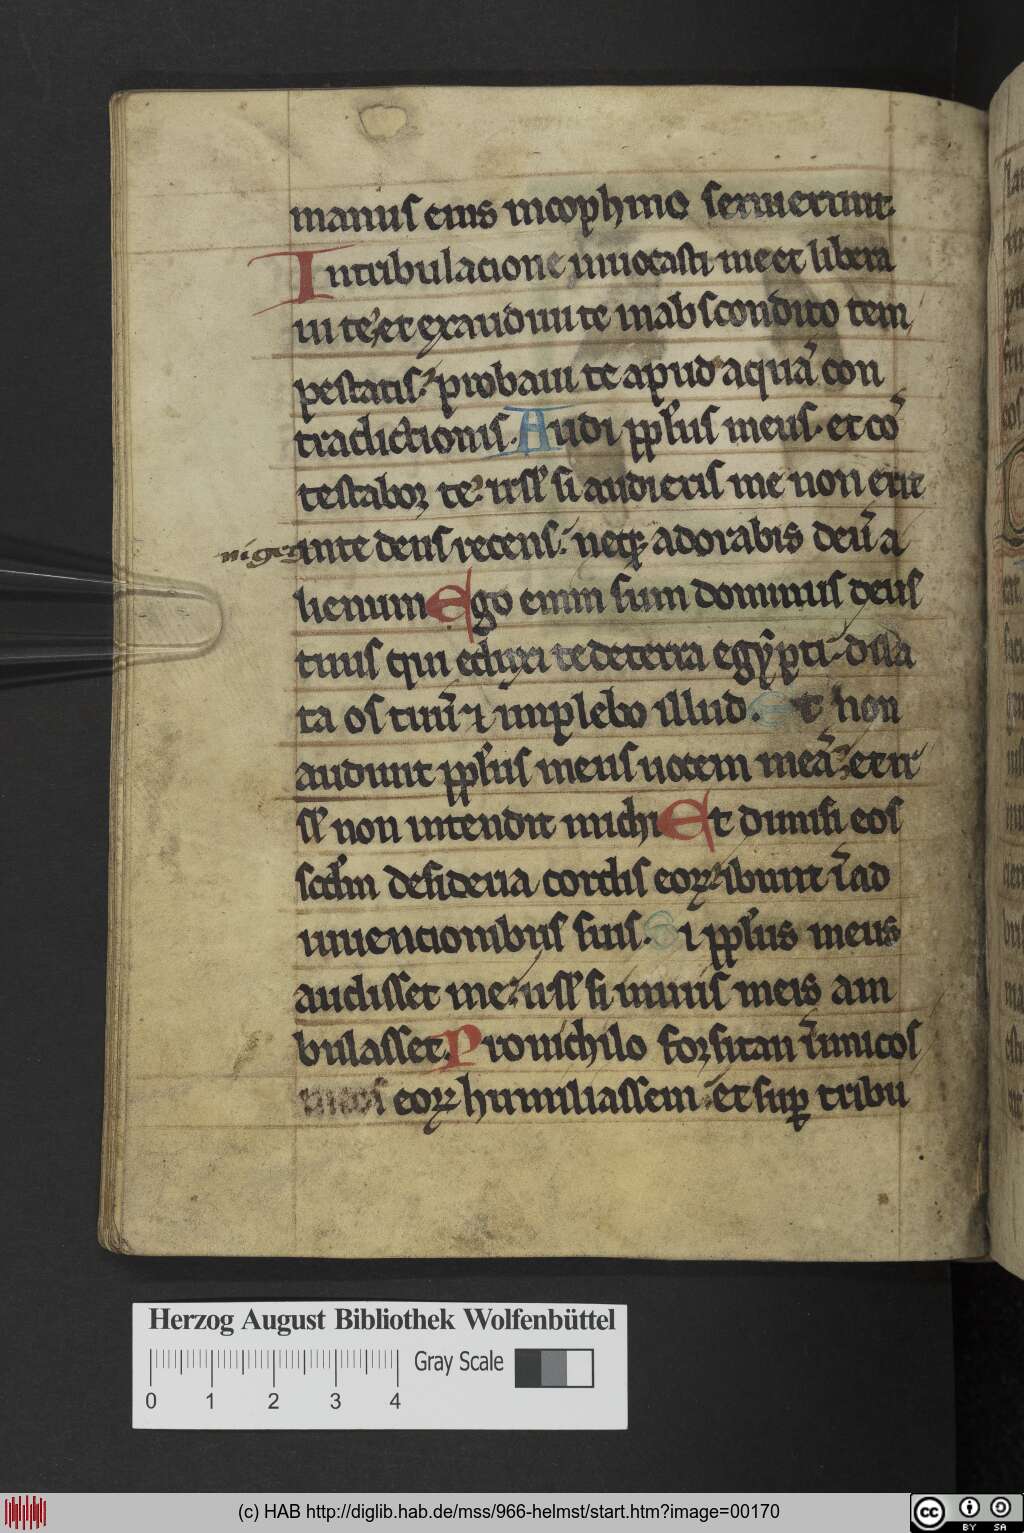 manus eius incophino seruierunt.
Intribulatione inuocasti me et libera
ui te et exaudiui te inabscondito tem
pestatis probaui te apud aquā con
tradictionis. Audi pplus meus et cō
testabor te isrl si audieris me non erit
niger inte deus recens neq; adorabis deū a
lienum Ego enim sum dominus deus
tuus qui eduxi te deterra egypti dila
ta os tuū et implebo illud. Et non
audiunt pplus meus uocem meā et is
rl non intendit michi Et dimisi eos
scdm desideria cordis eorum ibunt ī ad
inuencionibus suis. Si pplus meus
audisset me isrl si in uiis meis am
bulasset. Pro nichilo forsitan īimicos
meos eorum humiliassem et sup tribu
Herzog August Bibliothek Wolfenbüttel
Gray Scale
0 1 2 3 4
(c) HAB http://diglib.hab.de/mss/966-helmst/start.htm?image=00170
cc BY SA